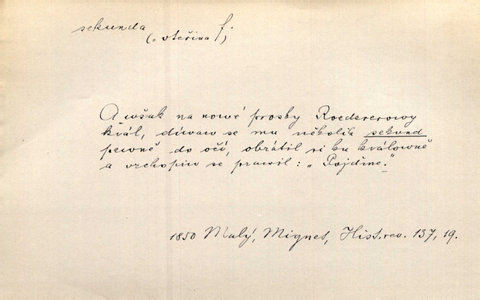 sekunda f.
(= vteřina)
Awšak na nowé prosby Roedererowy
král, díwaw se mu několik sekund
pewně do očí, obrátil se ku králowně
a vzchopiw se prawil: „Pojďme."
1850 Malý, Mignet, Hist. rev. 137, 19.